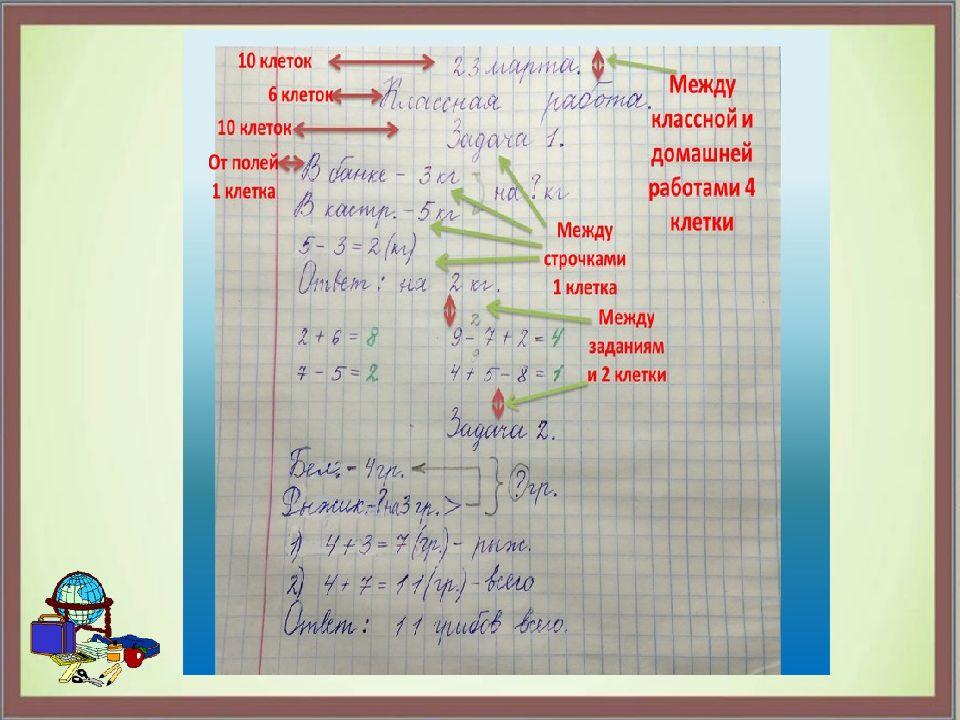 10 клеток
23 марта.
6 клеток
Классная работа.
Между классной и домашней работами 4 клетки
10 клеток
Задача 1.
От полей 1 клетка
В банке - 3 кг
В кастр. - 5 кг
на ? кг
5 - 3 = 2 (кг)
Ответ: на 2 кг.
Между строчками 1 клетка
2
2 + 6 = 8
9 - 7 + 2 = 4
9
7 - 5 = 2
4 + 5 - 8 = 1
Между заданиям и 2 клетки
Задача 2.
Бел. - 4 гр.
Рыжик. - ? на 3 гр. >
? гр.
1) 4 + 3 = 7 (гр.) - рыж.
2) 4 + 7 = 11 (гр.) - всего
Ответ: 11 грибов всего.